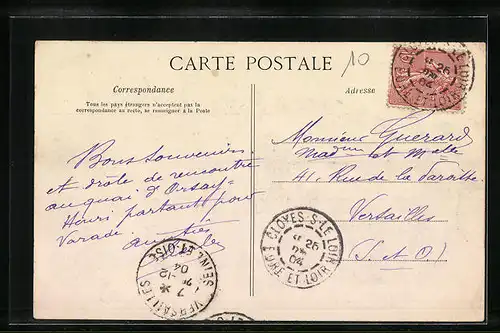 CARTE POSTALE
10
Correspondance
Tous les pays étrangers n'acceptent pas la
correspondance au recto, se renseigner à la Poste
Adresse
Bons souvenirs
et drôle de rencontre
au quai d'Orsay
Henri partant pour
Varade
Monsieur Guerard
Mad et Melle
41 Rue de la Paroisse
Versailles
(S. et O.)
CLOYES-S-LE LOIR
26
04
EURE ET LOIR
CLOYES-S-LE LOIR
26
04
EURE ET LOIR
VERSAILLES
7
12
04
SEINE ET OISE